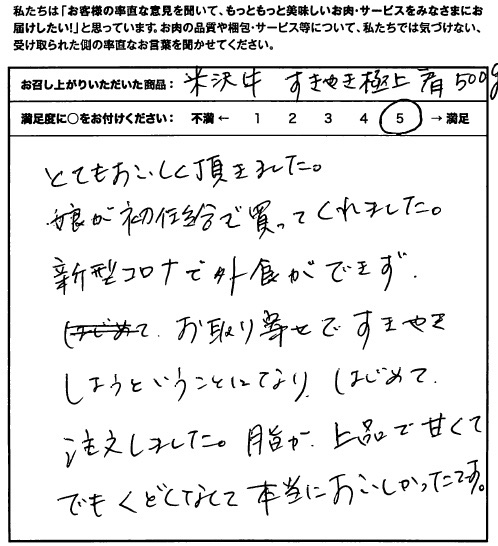 私たちは「お客様の率直な意見を聞いて、もっともっと美味しいお肉・サービスをみなさまにお
届けしたい!」と思っています。お肉の品質や梱包・サービス等について、私たちでは気づけない、
受け取られた側の率直なお言葉を聞かせてください。
お召し上がりいただいた商品: 米沢牛 すきやき極上 肩 500g
満足度に○をお付けください: 不満 ← 1 2 3 4 5 → 満足
とてもおいしく頂きました。
娘が初任給で買ってくれました。
新型コロナで外食ができず、
はじめて、お取り寄せですきやき
しようということになり、はじめて、
注文しました。脂が、上品で甘くて
でもくどくなくて本当においしかったです。